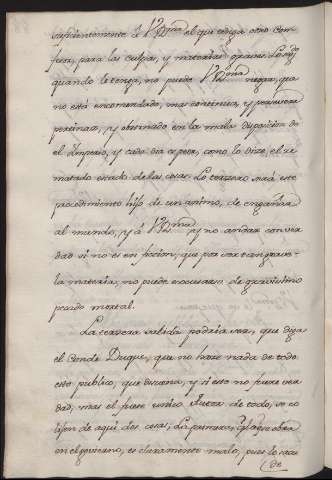 suficientemente á V. Dma. el que tenga otro con-
fesor, para las culpas, y materias graves. Lo 2º
quando le tenga, no puede V. Dma. negar, que
no está enmendado, mas continua, y persevera
pertinaz, y obstinado en la mala disposicion de
el Imperio, y cada dia a peor, como lo dize, el re-
matado estado de las cosas. Lo tercero será este
procedimiento hijo de un animo, de engañar
al mundo, y á V. Dma. y no andar con ver-
dad si no es en ficcion, que por ser tan grave
la materia, no puede escusarse de gravissimo
pecado mortal.
La tercera salida podria ser, que diga
el Conde Duque, que no haze nada de todo
esto publico, que disuena, y si esto no fuere ver-
dad, mas el fuese unico Autor de todo, se co-
lijen de aqui dos cosas; La primera, q lo que obra
en el govierno, es claramente malo, pues lo
de